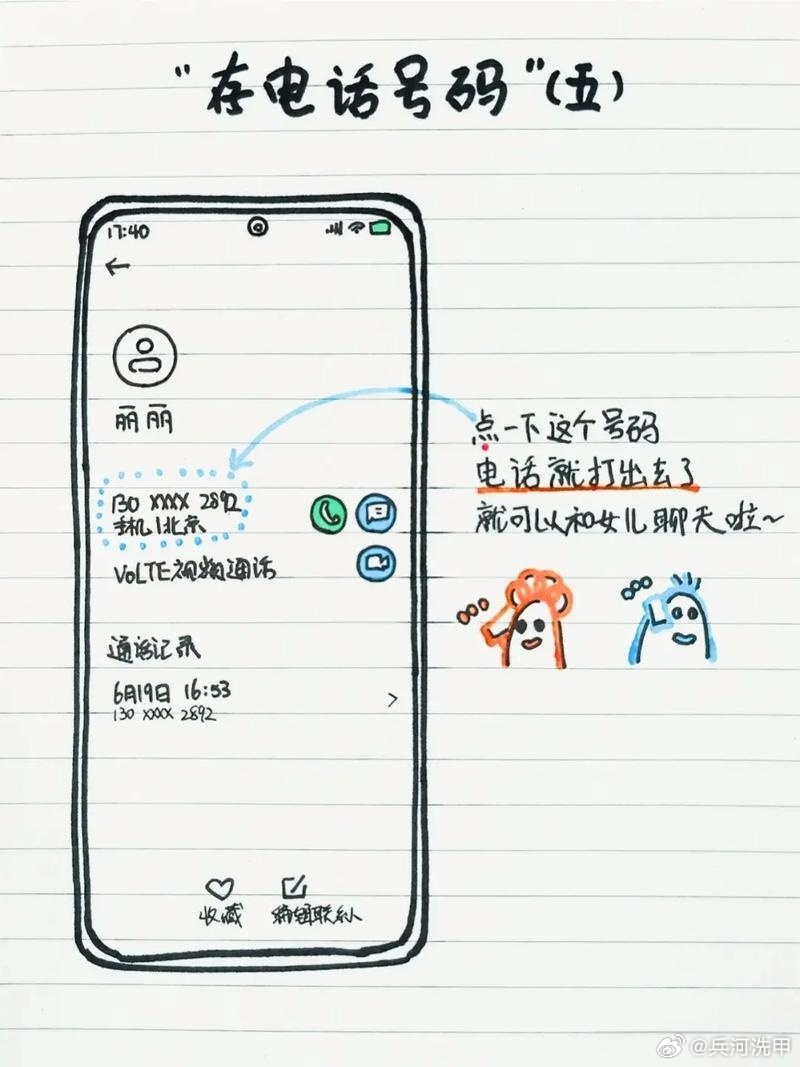 “存电话号码”(五)
17:40
丽丽
130 XXXX 2892
手机|北京
VoLTE视频通话
通话记录
6月19日 16:53
130 XXXX 2892
收藏
编辑联系人
点一下这个号码
电话就打出去了
就可以和女儿聊天啦~
@兵河洗甲